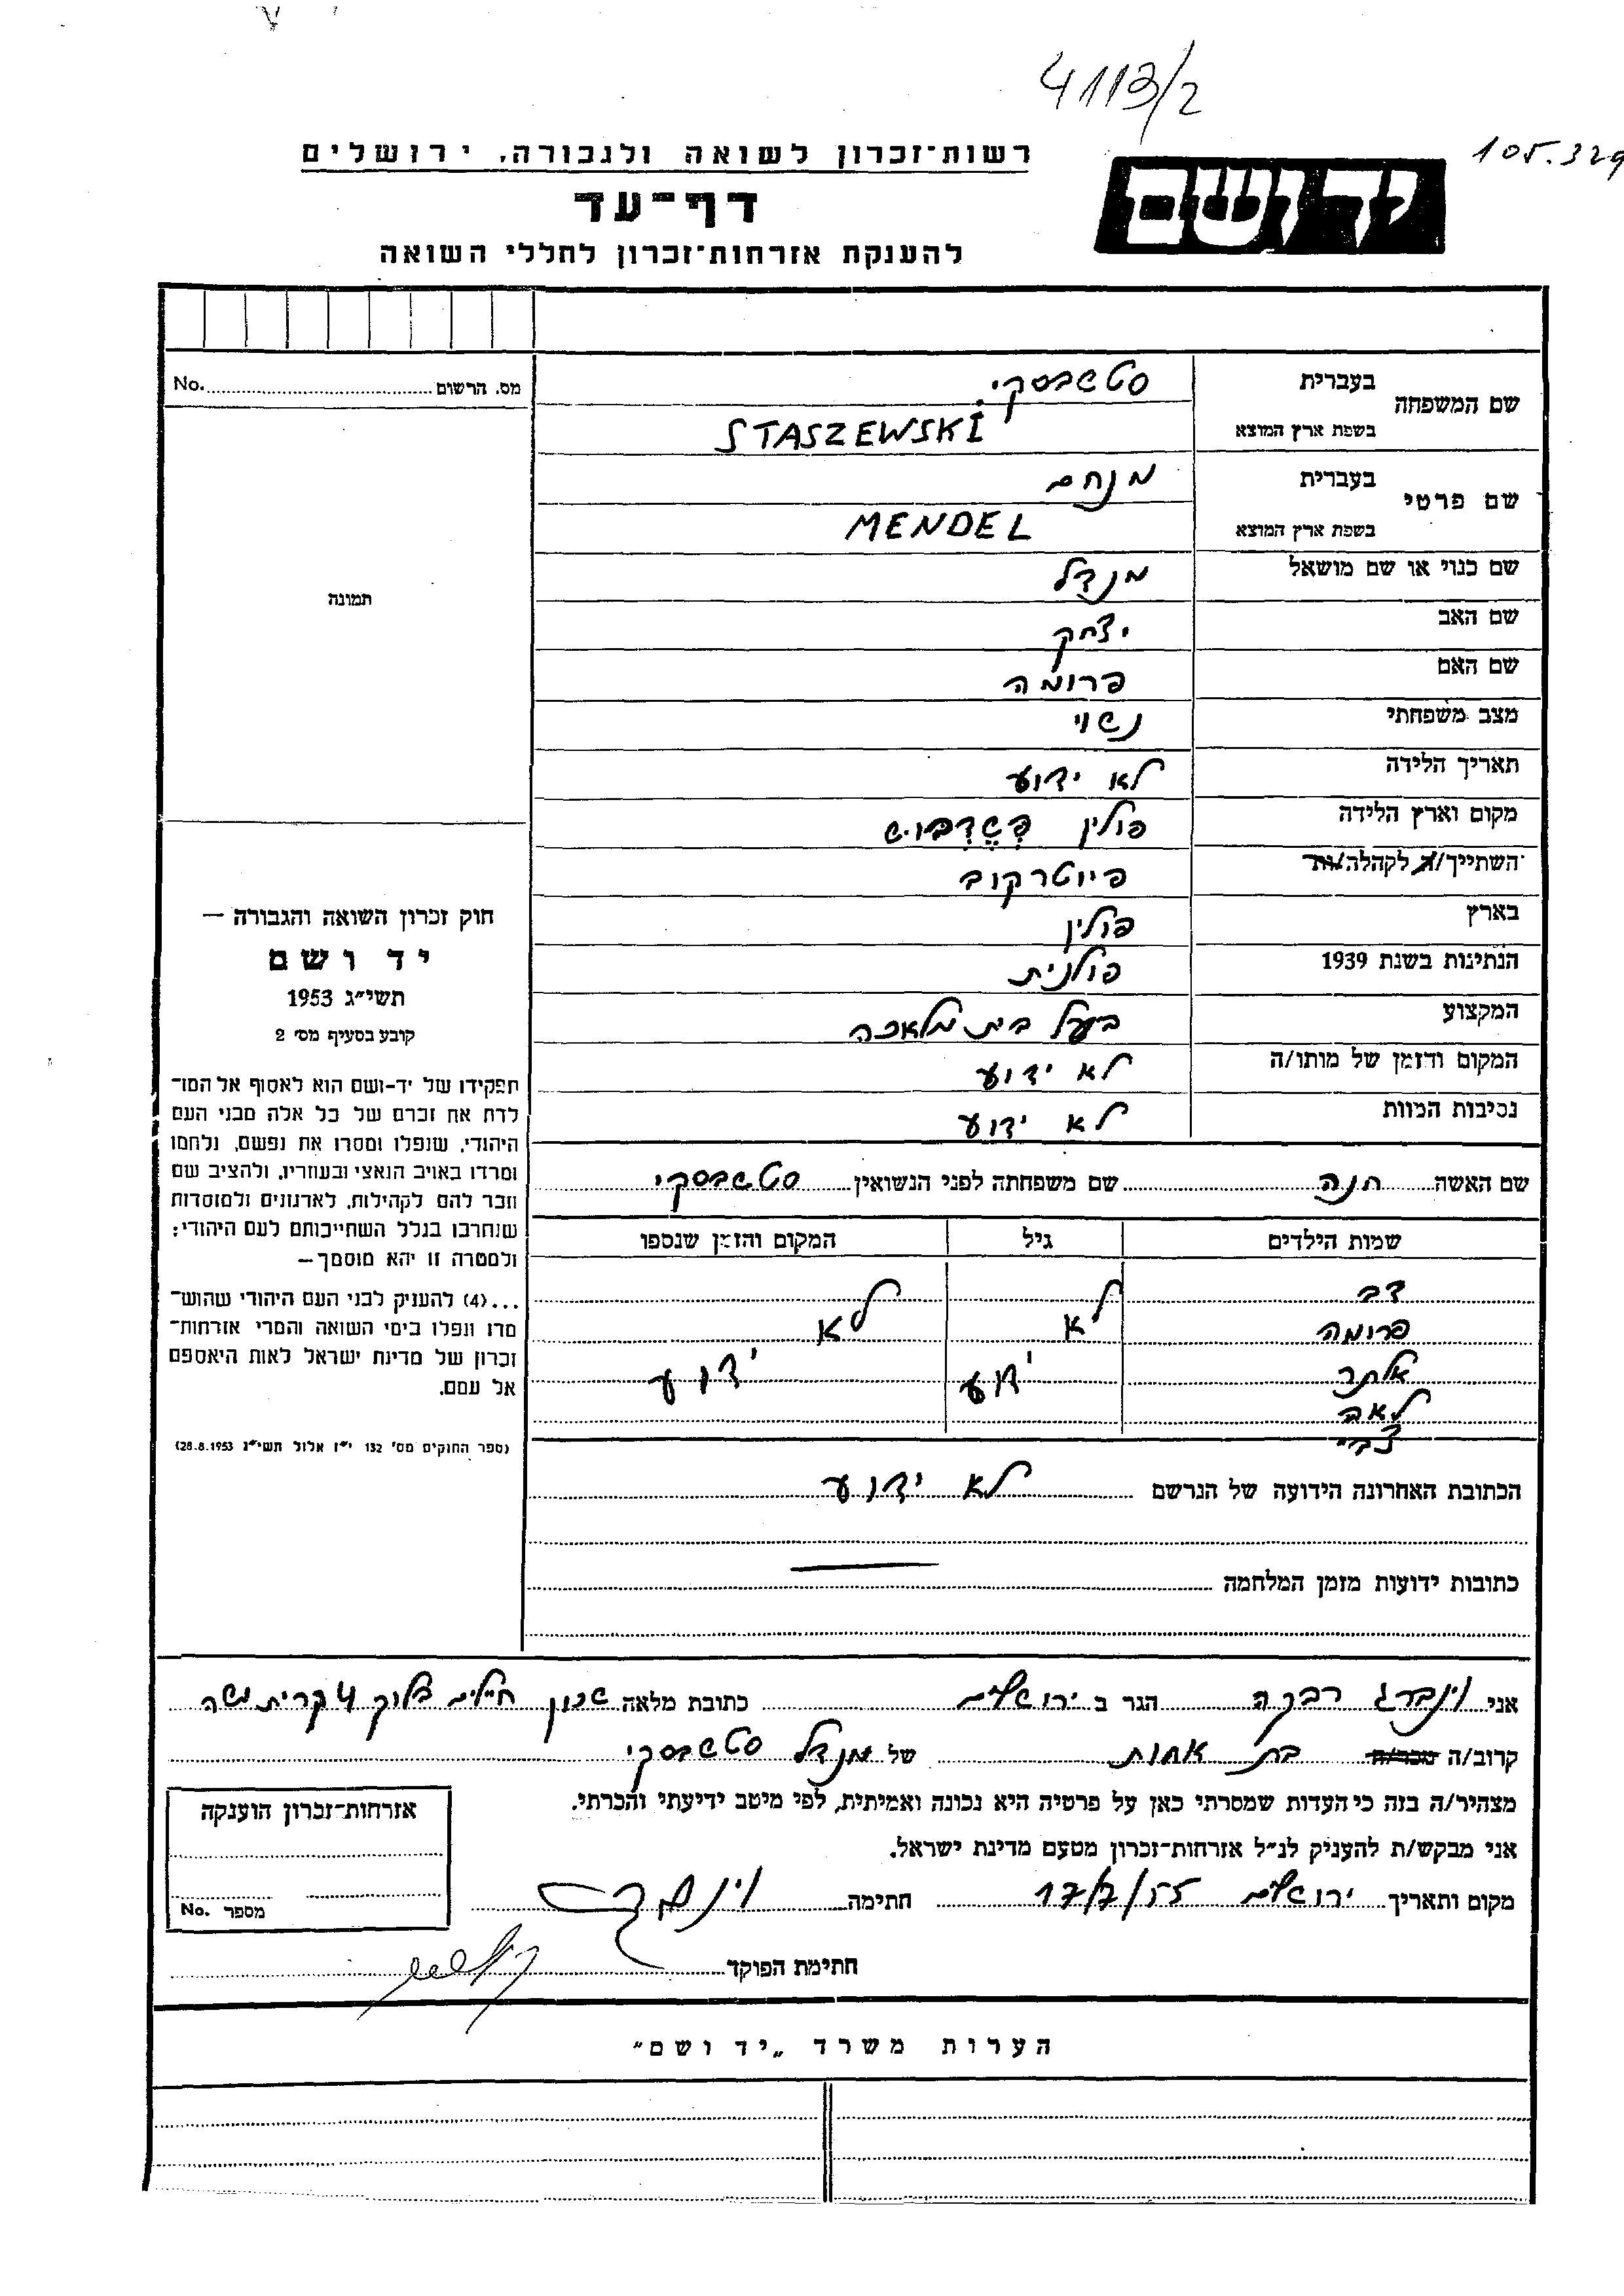 4113/2
105.329
יד ושם
רשות־זכרון לשואה ולגבורה, ירושלים
דף־עד
להענקת אזרחות־זכרון לחללי השואה
מס. הרשום No.
תמונה
שם המשפחה בעברית סטשבסקי
בשפת ארץ המוצא STASZEWSKI
שם פרטי בעברית מנחם
בשפת ארץ המוצא MENDEL
שם כנוי או שם מושאל מנדל
שם האב יצחק
שם האם פרומה
מצב משפחתי נשוי
תאריך הלידה לא ידוע
מקום וארץ הלידה פולין
השתייך/ה לקהלה/ות פיוטרקוב
בארץ פולין
הנתינות בשנת 1939 פולנית
המקצוע בעל בית מלאכה
המקום והזמן של מותו/ה לא ידוע
נסיבות המוות לא ידוע
שם האשה חנה שם משפחתה לפני הנשואין סטשבסקי
שמות הילדים גיל המקום והזמן שנספו
דב
פרומה לא לא
אלתר ידוע ידוע
לאה
צבי
הכתובת האחרונה הידועה של הנרשם לא ידוע
כתובות ידועות מזמן המלחמה
חוק זכרון השואה והגבורה —
יד ושם
תשי״ג 1953
קובע בסעיף מס׳ 2
תפקידו של יד-ושם הוא לאסוף אל המו־
לדת את זכרם של כל אלה מבני העם
היהודי, שנפלו ומסרו את נפשם, נלחמו
ומרדו באויב הנאצי ובעוזריו, ולהציב שם
וזכר להם לקהילות, לארגונים ולמוסדות
שנחרבו בגלל השתייכותם לעם היהודי;
ולמטרה זו יהא מוסמך —
...(4) להעניק לבני העם היהודי שהוש־
מדו ונפלו בימי השואה והמרי אזרחות־
זכרון של מדינת ישראל לאות היאספם
אל עמם.
(ספר החוקים מס׳ 132 י״ז אלול תשי״ג 28.8.1953)
אני וינברג רבקה הגר ב ירושלים כתובת מלאה שכון חיילים בלוק 4 קרית משה
קרוב/ה מכר/ה בת אחות של מנדל סטשבסקי
מצהיר/ה בזה כי העדות שמסרתי כאן על פרטיה היא נכונה ואמיתית, לפי מיטב ידיעתי והכרתי.
אני מבקש/ת להעניק לנ״ל אזרחות־זכרון מטעם מדינת ישראל.
מקום ותאריך ירושלים 17/7/55 חתימה
חתימת הפוקד
אזרחות־זכרון הוענקה
מספר No.
הערות משרד „יד ושם״